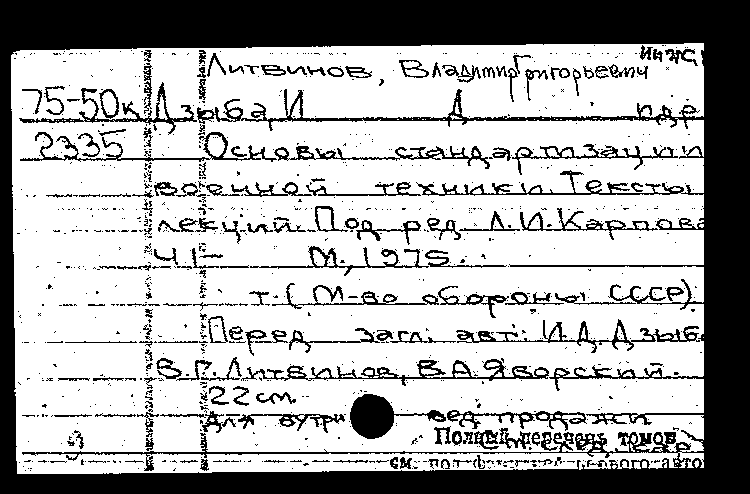 Инж
Литвинов, Владимир Григорьевич
75-50к Дзыба, И Д и др
2335 Основы стандартизации
военной техники. Тексты
лекций. Под ред Л.И.Карпова
Ч 1- М., 1975.
т. (М-во обороны СССР)
Перед загл. авт: И.Д.Дзыба
В.Г.Литвинов, В.А Яворский.
22 см.
Для внутри вед продажи
Полный перечень томов
см. первого авто